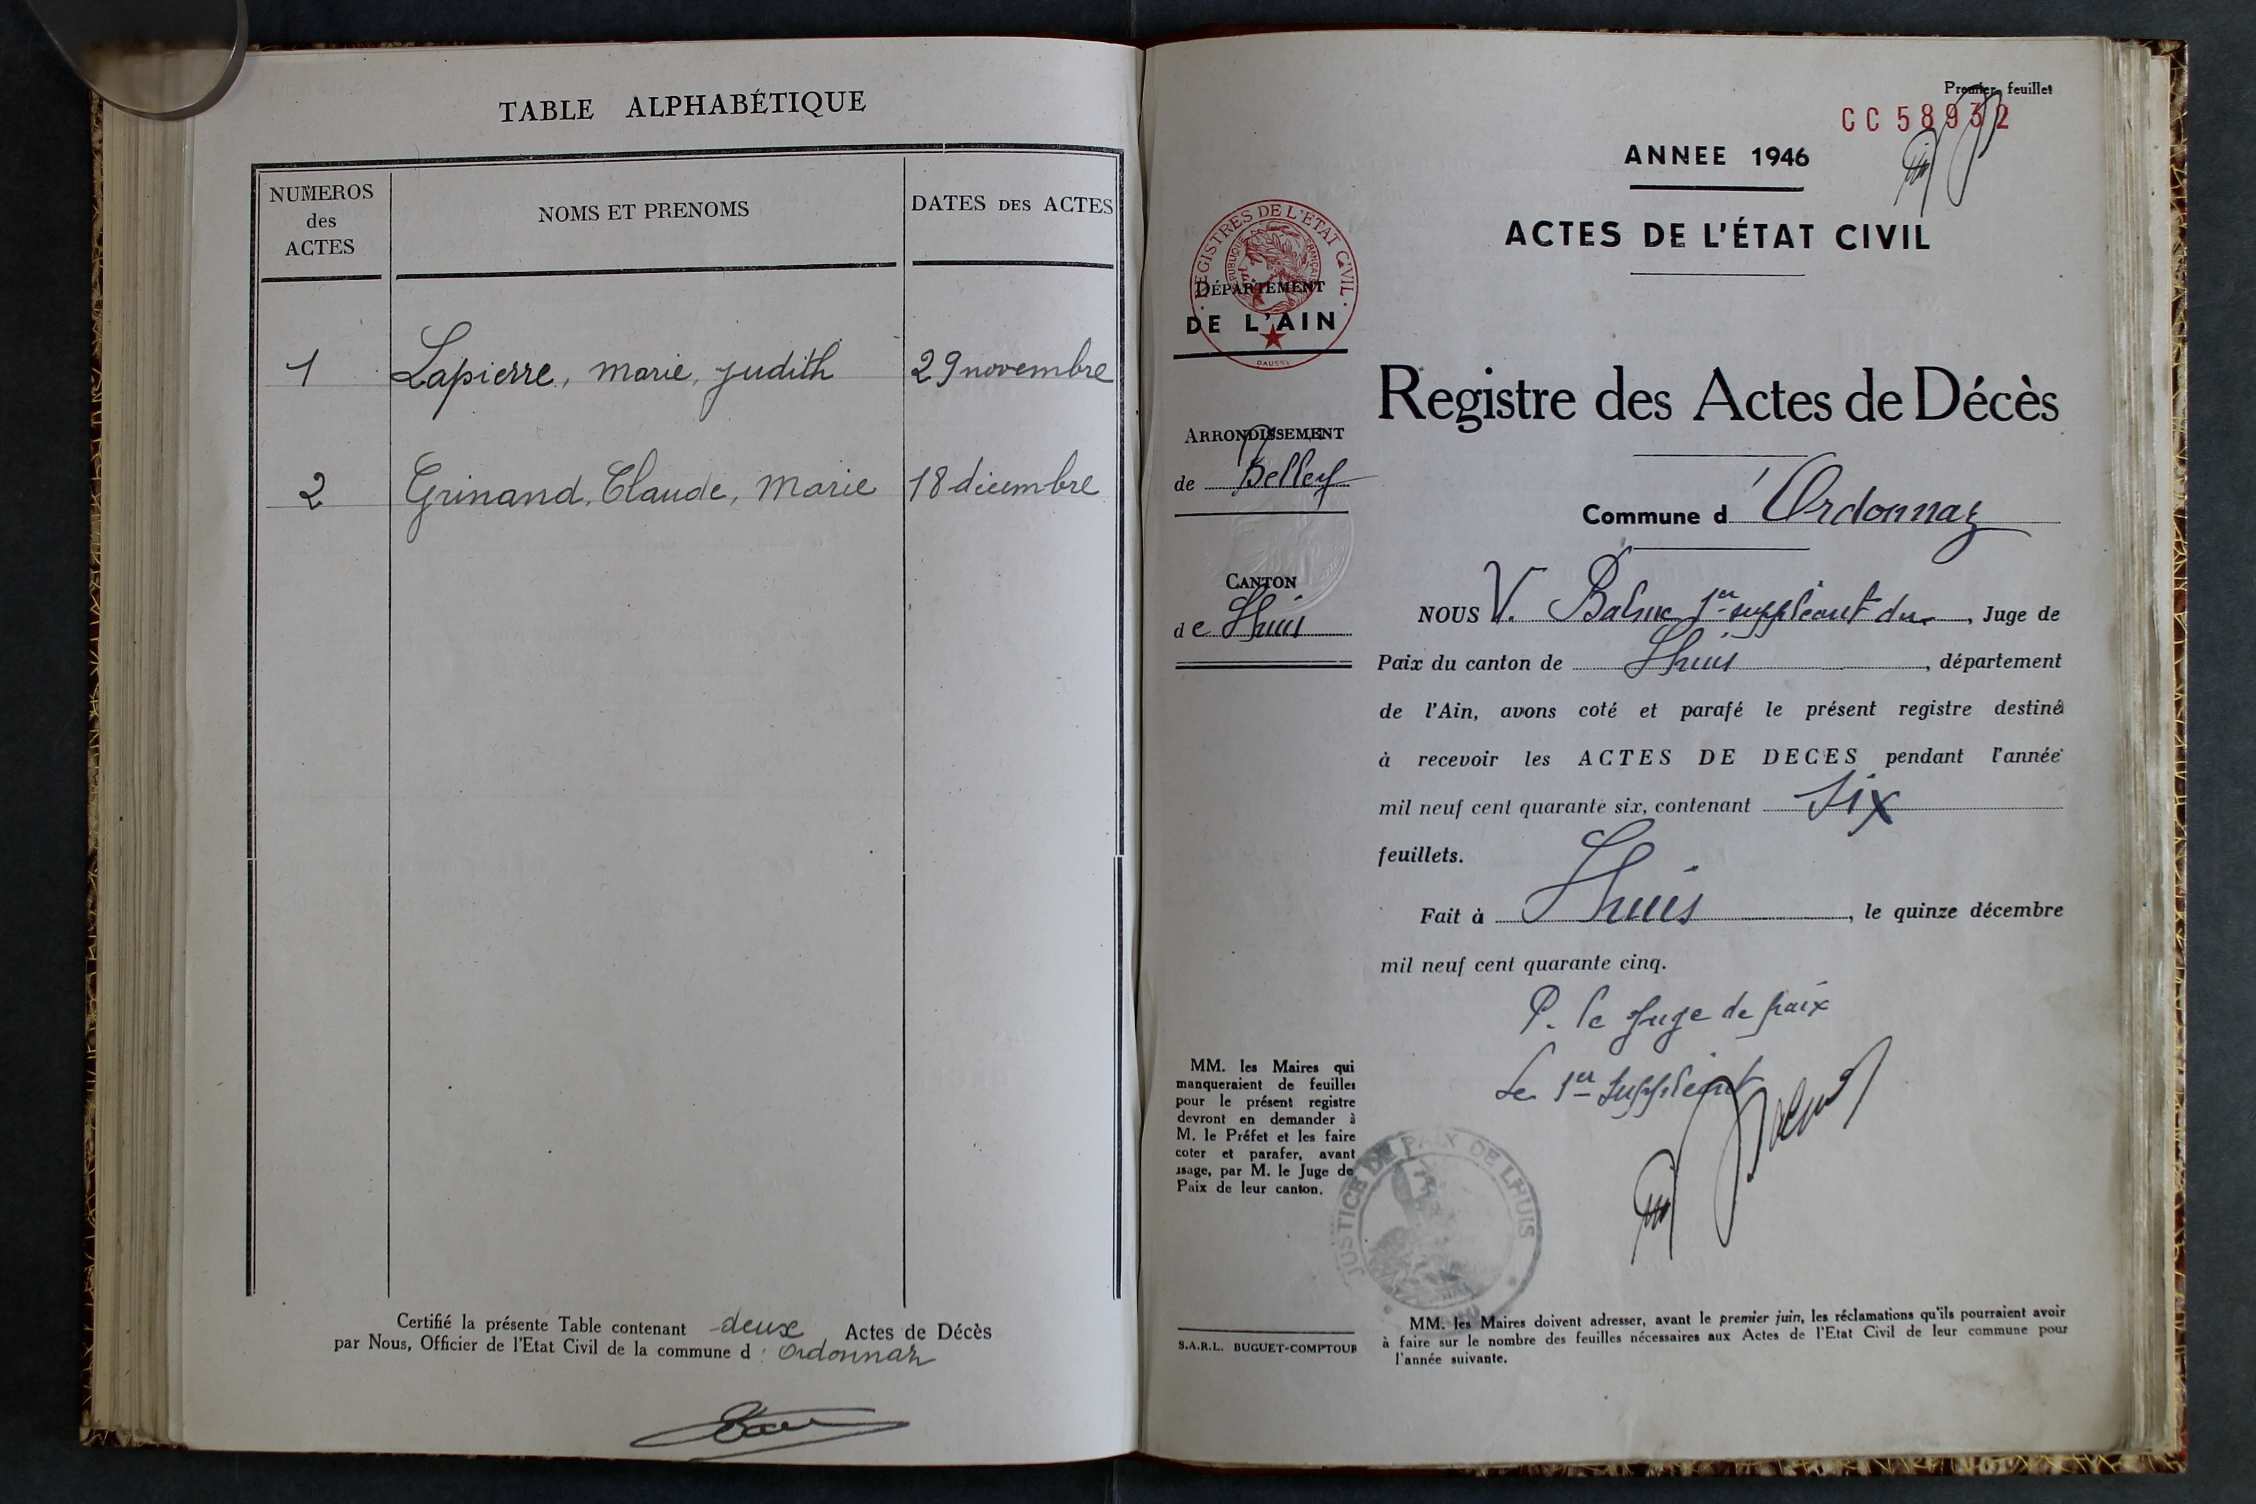 TABLE ALPHABÉTIQUE
NUMEROS
des
ACTES
NOMS ET PRENOMS
DATES DES ACTES
1 Lapierre, marie, judith 29 novembre
2 Grinand, Claude, Marie 18 décembre
Certifié la présente Table contenant deux Actes de Décès
par Nous, Officier de l'Etat Civil de la commune d' Ordonnaz
Premier feuillet
CC 58932
ANNEE 1946
ACTES DE L'ÉTAT CIVIL
REGISTRES DE L'ETAT CIVIL
REPUBLIQUE FRANÇAISE
DÉPARTEMENT
DE L'AIN
DAUSSY
Registre des Actes de Décès
ARRONDISSEMENT
de Belley
Commune d'Ordonnaz
CANTON
de Lhuis
NOUS V. 1er suppléant du, Juge de
Paix du canton de Lhuis, département
de l'Ain, avons coté et parafé le présent registre destiné
à recevoir les ACTES DE DECES pendant l'année
mil neuf cent quarante six, contenant six
feuillets.
Fait à Lhuis, le quinze décembre
mil neuf cent quarante cinq.
P. le Juge de paix
Le 1er Suppléant
MM. les Maires qui
manqueraient de feuilles
pour le présent registre
devront en demander à
M. le Préfet et les faire
coter et parafer, avant
usage, par M. le Juge de
Paix de leur canton.
JUSTICE DE PAIX DE LHUIS
S.A.R.L. BUGUET-COMPTOUR
MM. les Maires doivent adresser, avant le premier juin, les réclamations qu'ils pourraient avoir
à faire sur le nombre des feuilles nécessaires aux Actes de l'Etat Civil de leur commune pour
l'année suivante.